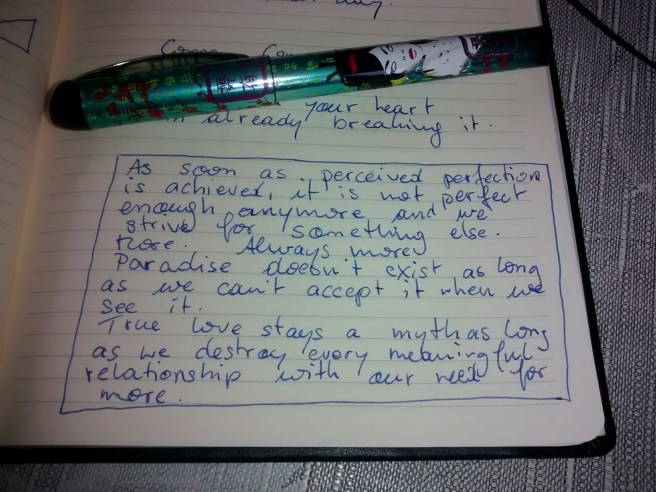 day.
your heart
already breaking it.
As soon as perceived perfection
is achieved, it is not perfect
enough anymore and we
strive for something else.
More. Always more.
Paradise doesn't exist as long
as we can't accept it when we
see it.
True love stays a myth as long
as we destroy every meaningful
relationship with our need for
more.